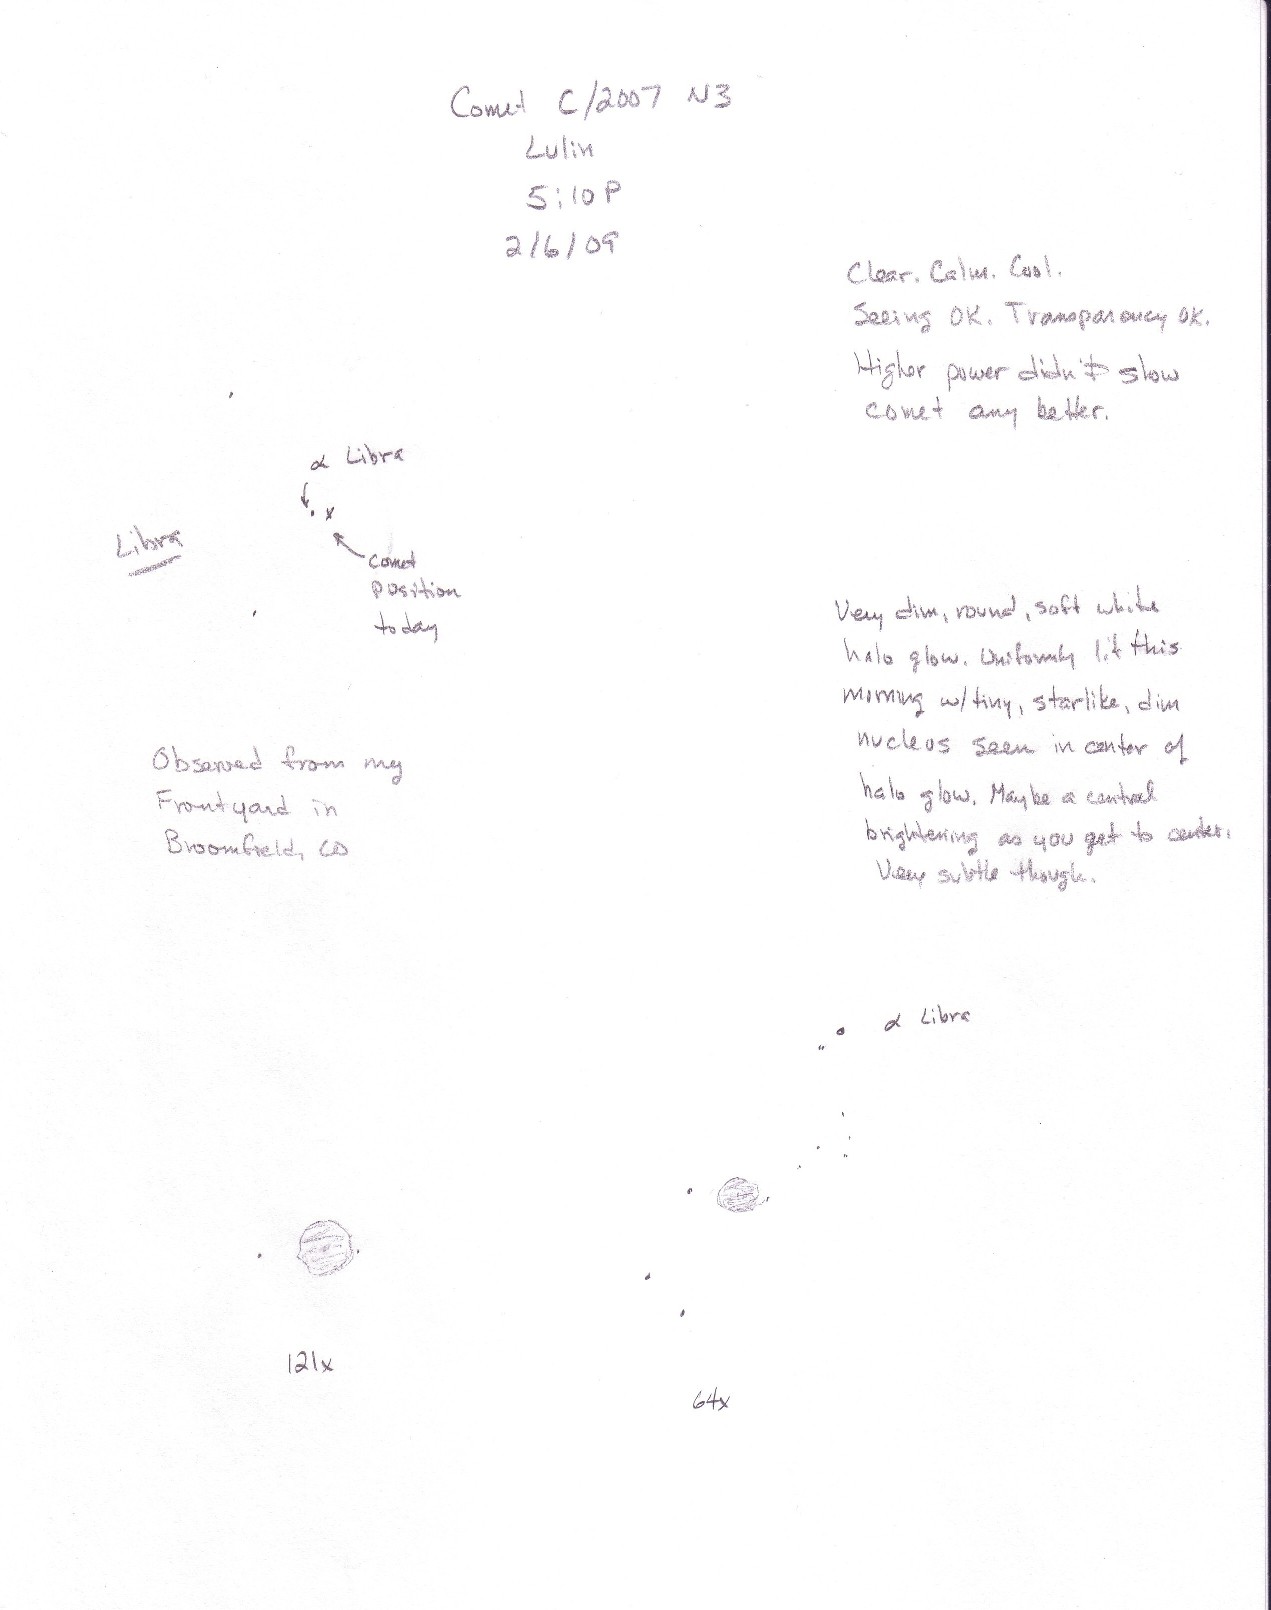 Comet C/2007 N3
Lulin
5:10P
2/6/09
Clear. Calm. Cool.
Seeing OK. Transparancy OK.
Higher power didn't slow
comet any better.
α Libra
Libra
comet
position
today
Very dim, round, soft white
halo glow. Uniformly lit this
morning w/tiny, starlike, dim
nucleus seen in center of
halo glow. Maybe a central
brightening as you get to center.
Very subtle though.
Observed from my
Front yard in
Broomfield, CO
α Libra
121x
64x